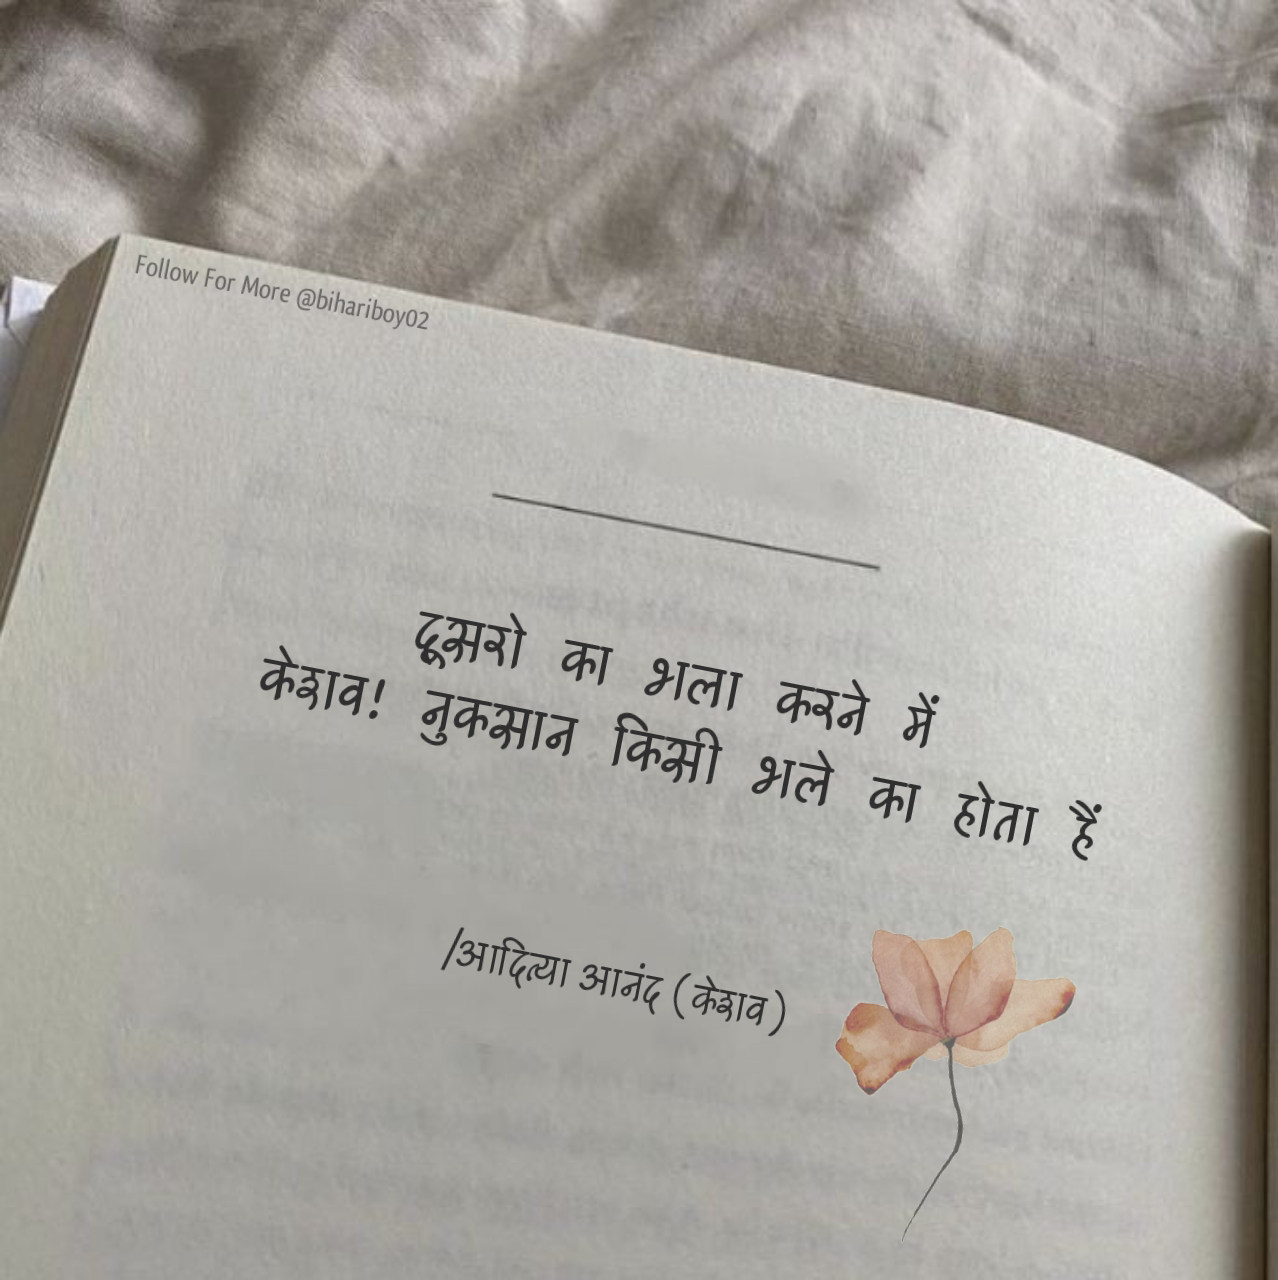 Follow For More @bihariboy02
दूसरो का भला करने में
केशव! नुकसान किसी भले का होता हैं
/आदित्या आनंद (केशव)